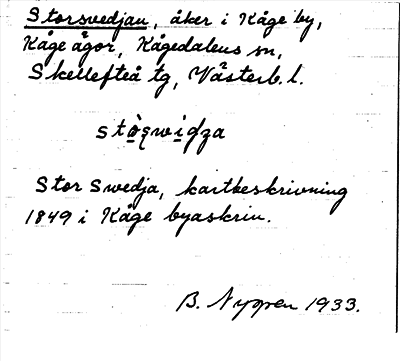 Storsvedjan, åker i Kåge by,
Kåge ågor, Kågedalens sn,
Skellefteå tg, Västerb. l.
Stor Swedja, kartbeskrivning
1849 i Kåge byaskrin.
B. Nygren 1933.